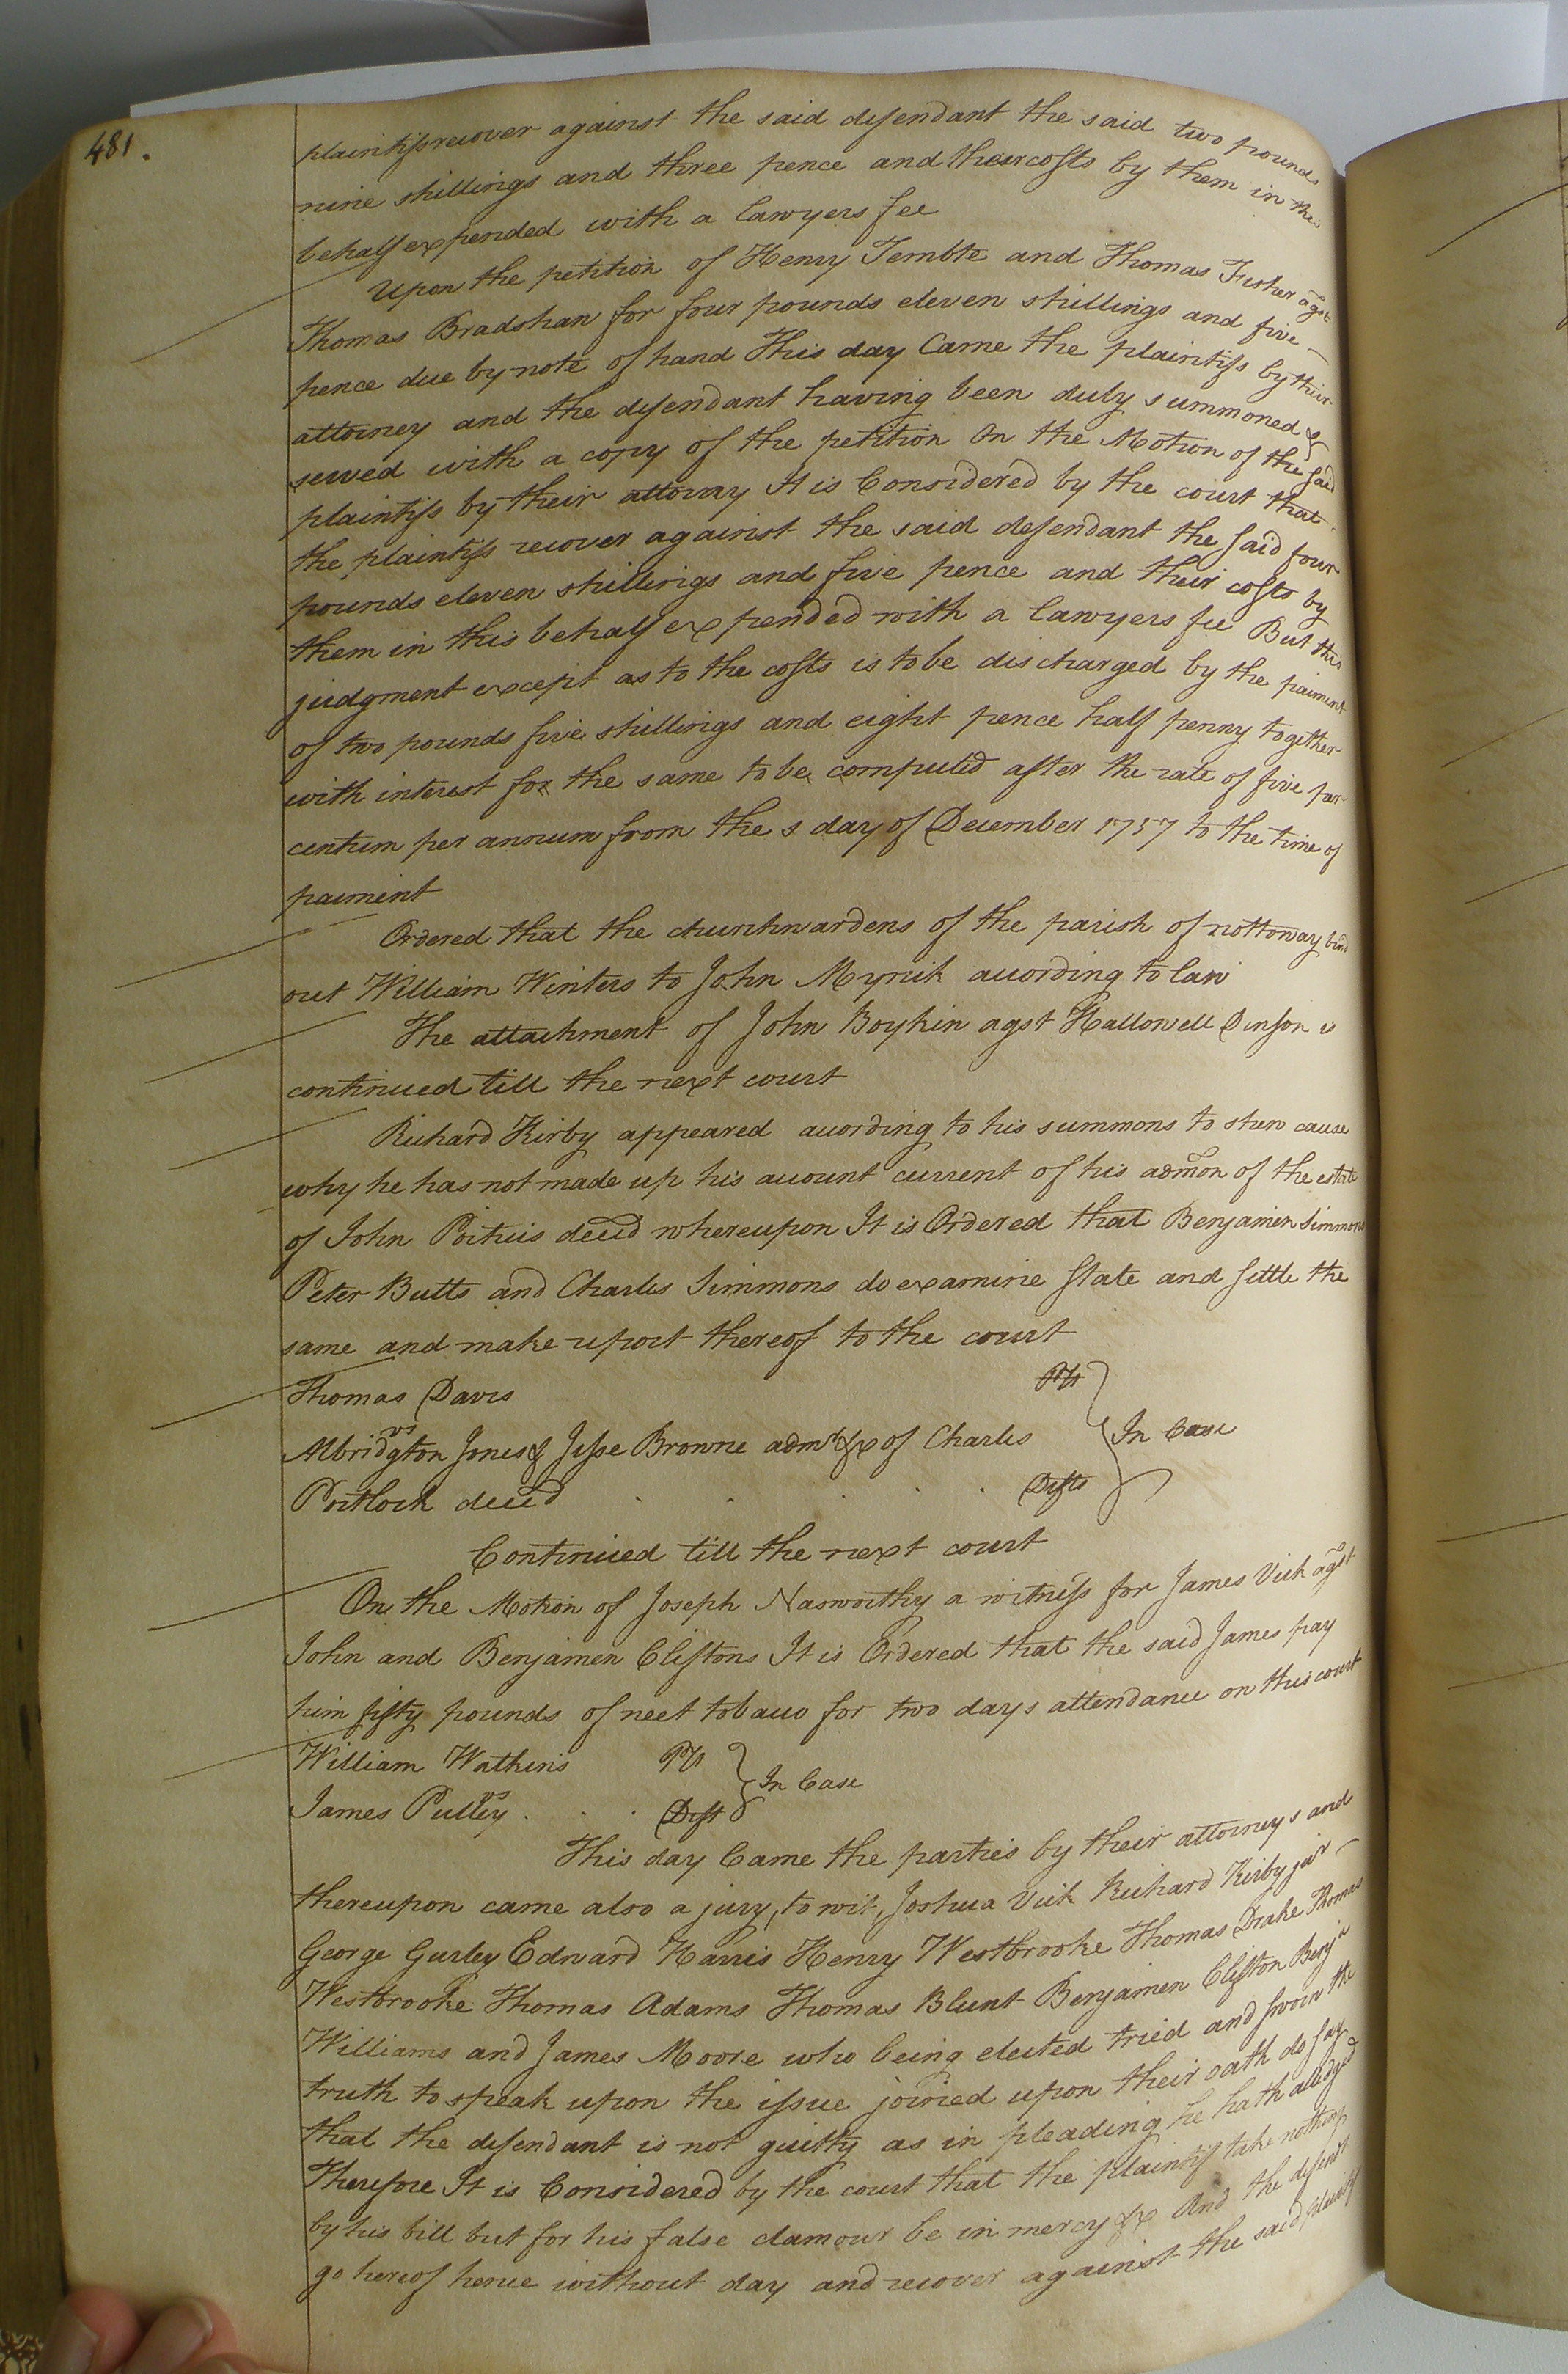 481.
plaintifs recover against the said defendant the said two pounds
nine shillings and three pence and their costs by them in this
behalf expended with a Lawyers fee
Upon the petition of Henry Temble and Thomas Fisher agst
Thomas Bradshaw for four pounds eleven shillings and five
pence due by note of hand This day Came the plaintifs by their
attorney and the defendant having been duly summoned &
served with a copy of the petition On the Motion of the said
plaintifs by their attorny It is Considered by the court that
the plaintifs recover against the said defendant the said four
pounds eleven shillings and five pence and their costs by
them in this behalf expended with a Lawyers fee But this
judgment except as to the costs is to be discharged by the paiment
of two pounds five shillings and eight pence half penny together
with interest for the same to be computed after the rate of five per
centum per annum from the s day of December 1757 to the time of
paiment
Ordered that the churchwardens of the parish of nottoway bind
out William Winters to John Myrick according to law
The attachment of John Boykin agst Hallowell Denson is
continued till the next court
Richard Kirby appeared according to his summons to shew cause
why he has not made up his account current of his admon of the estate
of John Porteus decd whereupon It is Ordered that Benjamen Simmons
Peter Butts and Charles Simmons do examine state and settle the
same and make report thereof to the court
Thomas Davis Plt
vs
Albridgton Jones & Jesse Browne admr &c of Charles } In Case
Portlock decd . . . . . Defts
Continued till the next court
On the Motion of Joseph Nasworthy a witness for James Vick agst
John and Benjamen Cliftons It is Ordered that the said James pay
him fifty pounds of neet tobacco for two days attendance on this court
William Watkins Plt
vs } In Case
James Pulley . . . Deft
This day Came the parties by their attorneys and
thereupon came also a jury, to wit, Joshua Vick Richard Kirby junr
George Gurley Edward Harris Henry Westbrooke Thomas Drake Thomas
Westbrooke Thomas Adams Thomas Blunt Benjamen Clifton Benja
Williams and James Moore who being elected tried and sworn the
truth to speak upon the issue joined upon their oath do say
that the defendant is not guilty as in pleading he hath alledged
Therefore It is Considered by the court that the plaintif take nothing
by his bill but for his false clamour be in mercy &c And the defendt
go hereof hence without day and recover against the said plaintif